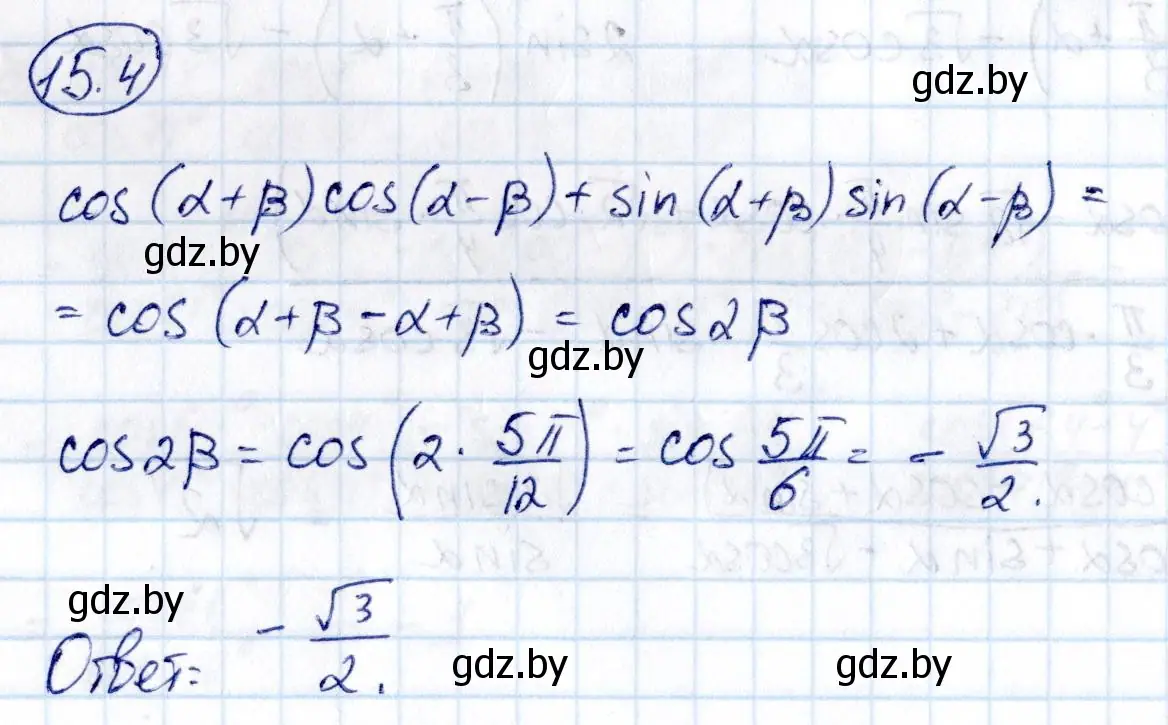 15.4
gdz.by
cos(α+β)cos(α-β)+sin(α+β)sin(α-β)=
gdz.by
= cos(α+β-α+β) = cos2β
gdz.by
cos2β = cos(2·5π/12) = cos 5π/6 = -√3/2.
gdz.by
Ответ: -√3/2.
gdz.by
gdz.by